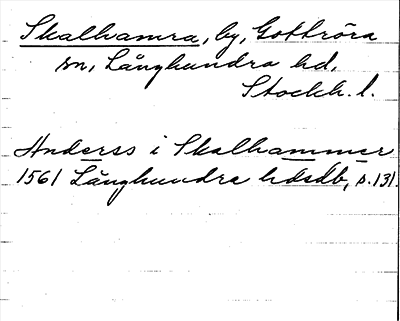 Skalhamra, by, Gottröra
sn, Långhundra hd,
Stockh. l.
Anderss i Skalhammer
1561 Långhundra hdsdb, s. 131.